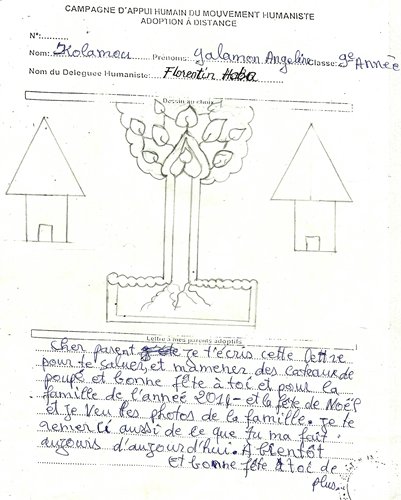 CAMPAGNE D'APPUI HUMAIN DU MOUVEMENT HUMANISTE
ADOPTION À DISTANCE
N°:
Nom: Kolamou Prénoms: Yalamon Angeline Classe: 9e Année
Nom du Deleguee Humaniste: Florentin Haba
Dessin au choix
Lettre à mes parents adoptifs
Cher parent je t'écris cette lettre
pour te saluer, et m'amener des cateaux de
poupé et bonne fête à toi et pour la
famille de l'année 2014 - et la fête de Noël
et je veu les photos de la famille. je te
remerci aussi de ce que tu ma fait
aujours d'aujourd'hui. A bientôt
et bonne fête à toi de
plus